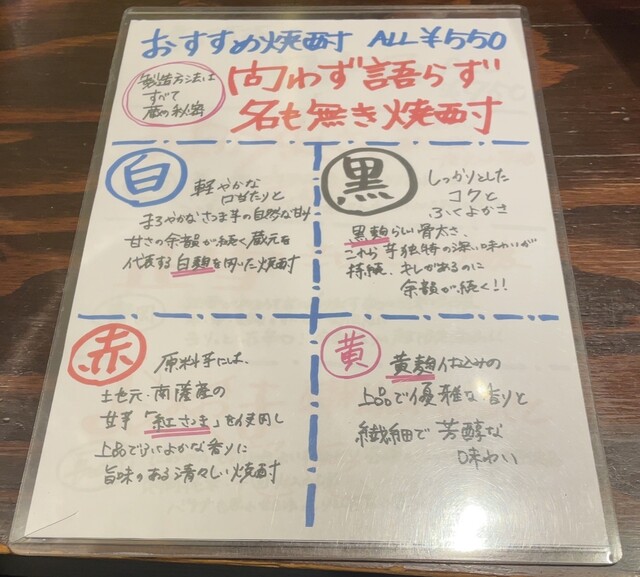 おすすめ焼酎 ALL ¥550
製造方法は
すべて
蔵の秘密
問わず語らず
名も無き焼酎
白
軽やかな
口当たりと
まろやかなさつま芋の自然な甘み
甘さの余韻が続く蔵元を
代表する白麹を用いた焼酎
黒
しっかりとした
コクと
ふくよかさ
黒麹らしい骨太さ、
これら芋独特の深い味わいが
持続、キレがあるのに
余韻が続く!!
赤
原料芋には、
土地元・南薩産の
甘芋「紅さつま」を使用し
上品でふくよかな香りに
旨味のある清々しい焼酎
黄
黄麹仕込みの
上品で優雅な香りと
繊細で芳醇な
味わい